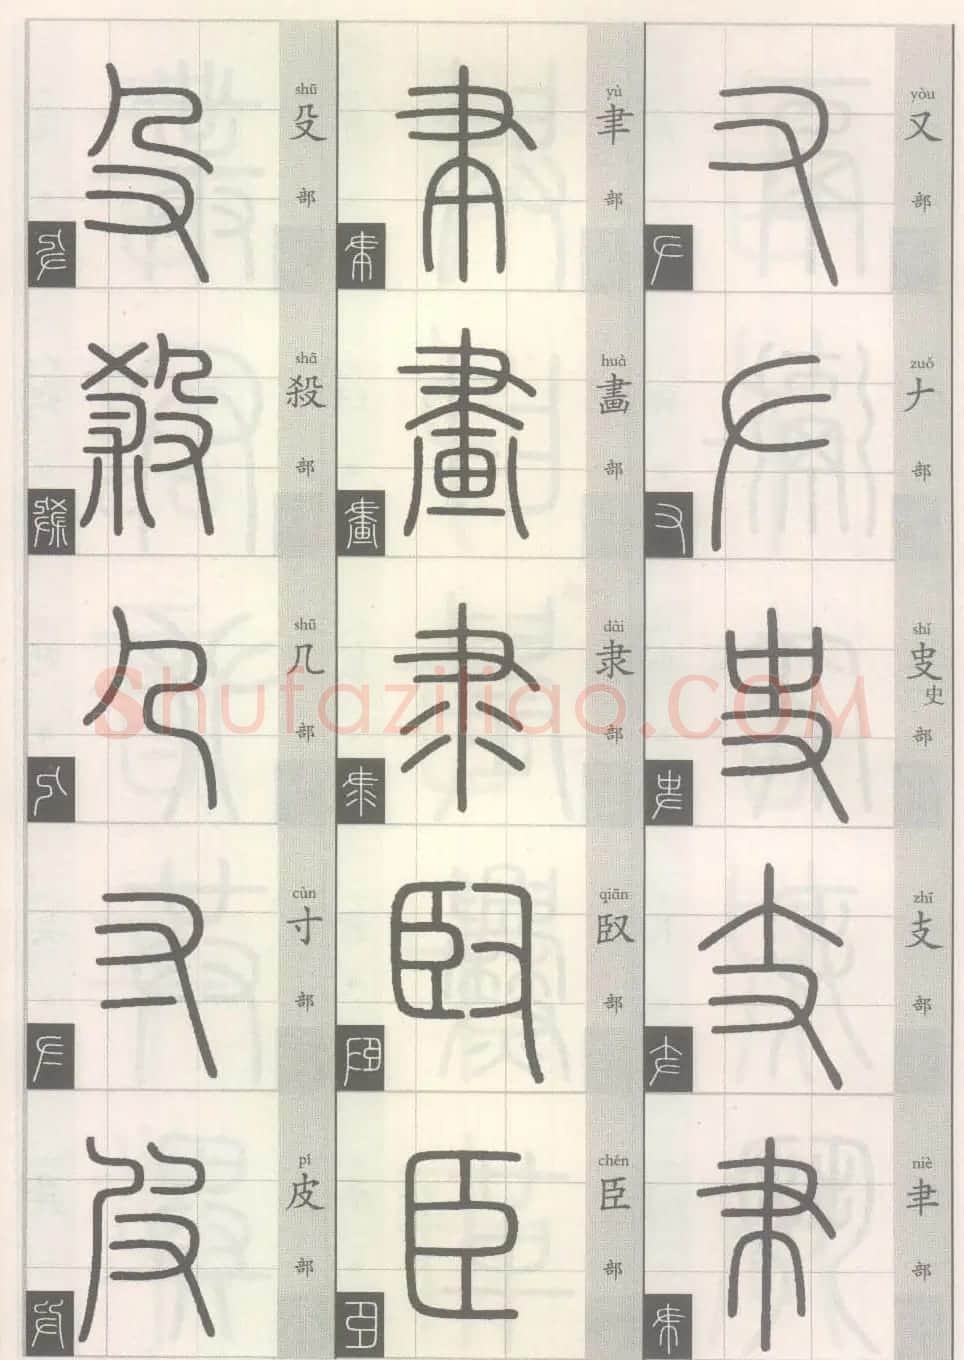 yòu
又
部
zuǒ
𠂇
部
shǐ
㕜
史
部
zhī
支
部
niè
𦘒
部
yù
聿
部
huà
畫
部
dài
隶
部
qiān
臤
部
chén
臣
部
shū
殳
部
shā
殺
部
shū
𠘧
部
cùn
寸
部
pí
皮
部
Shufaziliao.COM